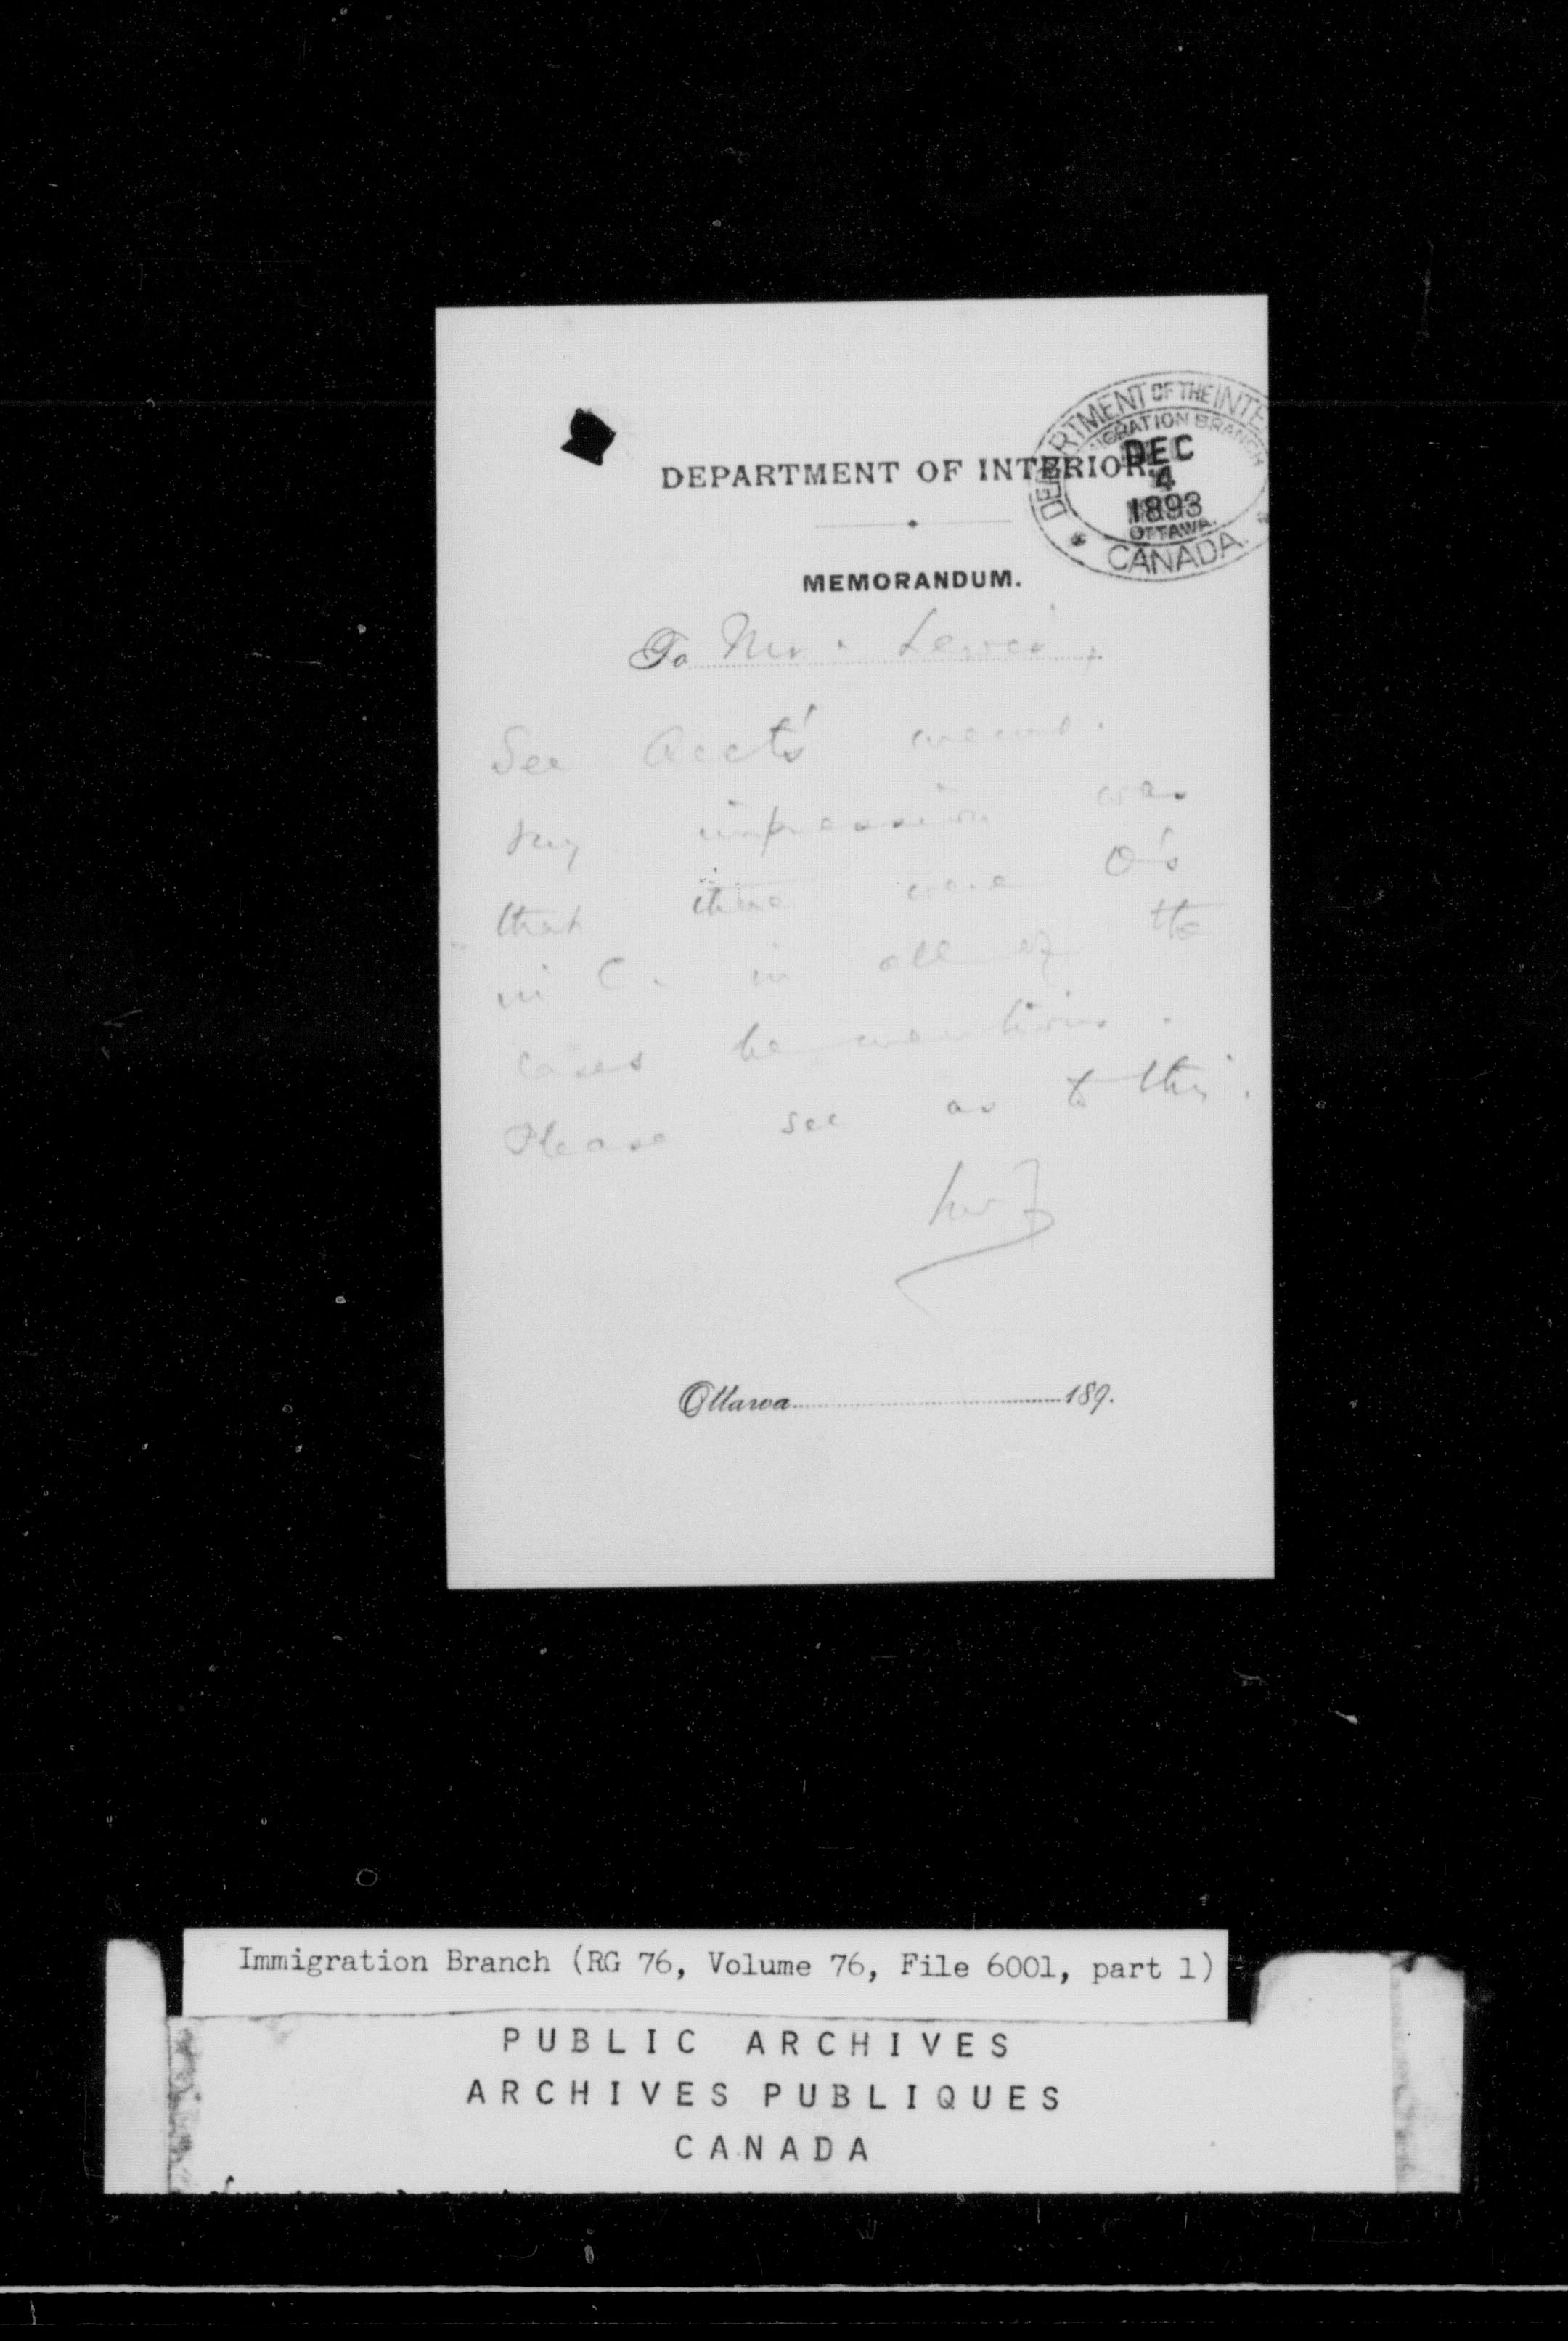 DEPARTMENT OF THE INTE
IGRATION BRANCH
DEC
4
1893
OTTAWA.
CANADA.
DEPARTMENT OF INTERIOR.
MEMORANDUM.
To Mr. Lewis,
See Acct's memo.
My impression was
that there were O's
in C. in all of the
cases he mentions.
Please see as to this.
Ottawa 189.
Immigration Branch (RG 76, Volume 76, File 6001, part 1)
PUBLIC ARCHIVES
ARCHIVES PUBLIQUES
CANADA